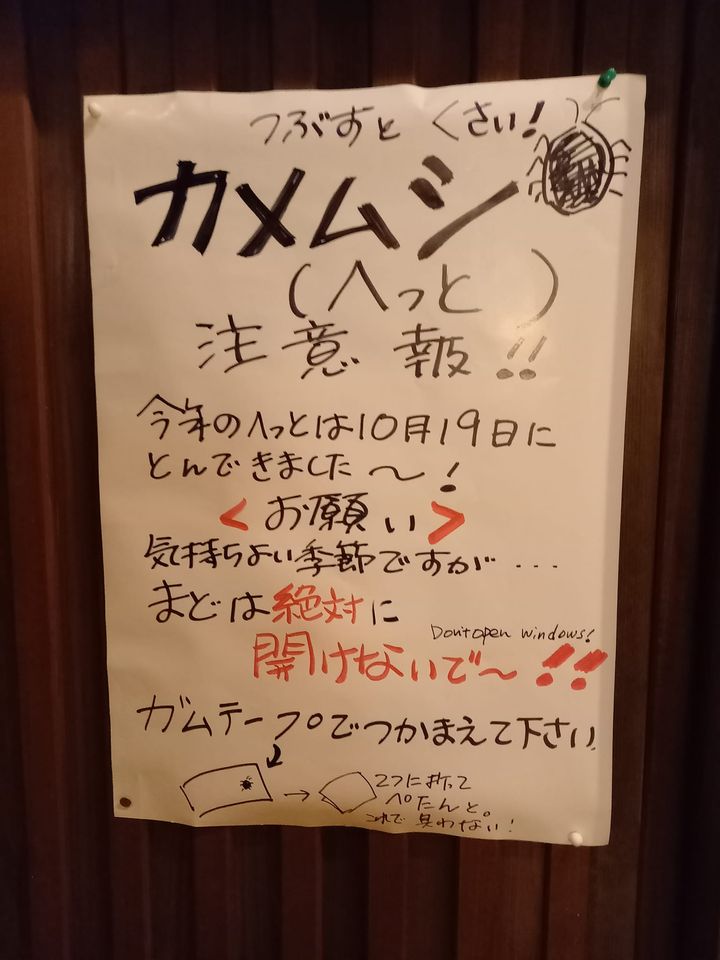 つぶすと くさい!
カメムシ
(へっと )
注意報!!
今年のへっとは10月19日に
とんできました〜!
<お願い>
気持ちよい季節ですが…
まどは絶対に
Don't open windows!
開けないで〜!!
ガムテープでつかまえて下さい
→
2つに折って
ペたんと。
これで臭わない!